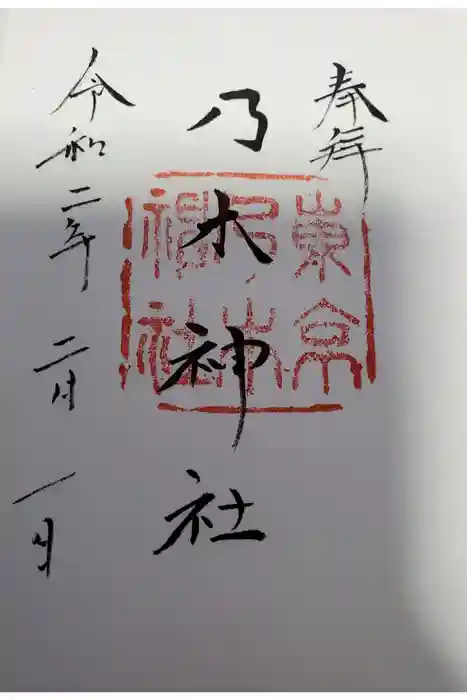 奉拝
乃木神社
令和二年二月一日
東京
乃木
神社